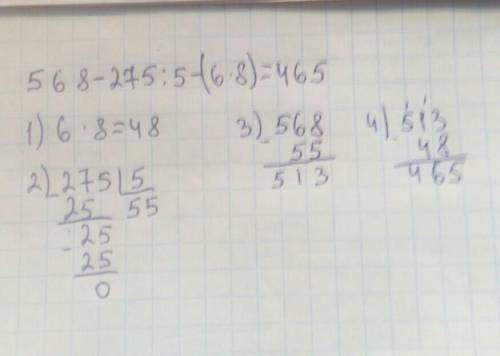 568-275:5-(6·8)=465
1) 6·8=48
2) 275 | 5
25 55
- 25
25
0
3) 568
- 55
513
4) 513
- 48
465